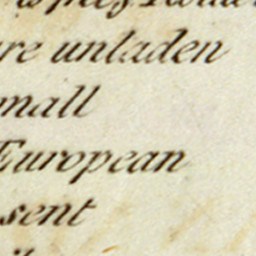 re unladen
mall
European
sent